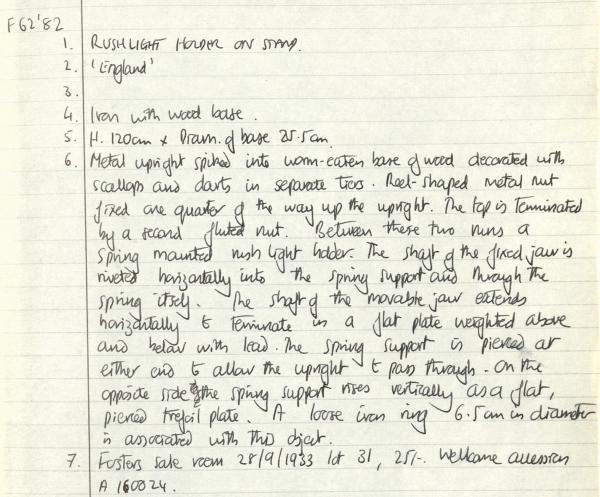 F62'82
1. RUSHLIGHT HOLDER ON STAND.
2. 'England'
3.
4. Iron with wood base.
5. H. 120cm x Diam. of base 25.5cm.
6. Metal upright spiked into worm-eaten base of wood decorated with
scallops and darts in separate tiers. Reel-shaped metal nut
fixed one quarter of the way up the upright. The top is terminated
by a second fluted nut. Between these two runs a
spring mounted rush light holder. The shaft of the fixed jaw is
riveted horizontally into the spring support and through the
spring itself. The shaft of the movable jaw extends
horizontally to terminate in a flat plate weighted above
and below with lead. The spring support is pierced at
either end to allow the upright to pass through. On the
opposite side of the spring support rises vertically as a flat,
pierced trefoil plate. A loose iron ring 6.5cm in diameter
is associated with this object.
7. Fosters sale room 28/9/1933 lot 31, 25/-. Wellcome accession
A 160024.